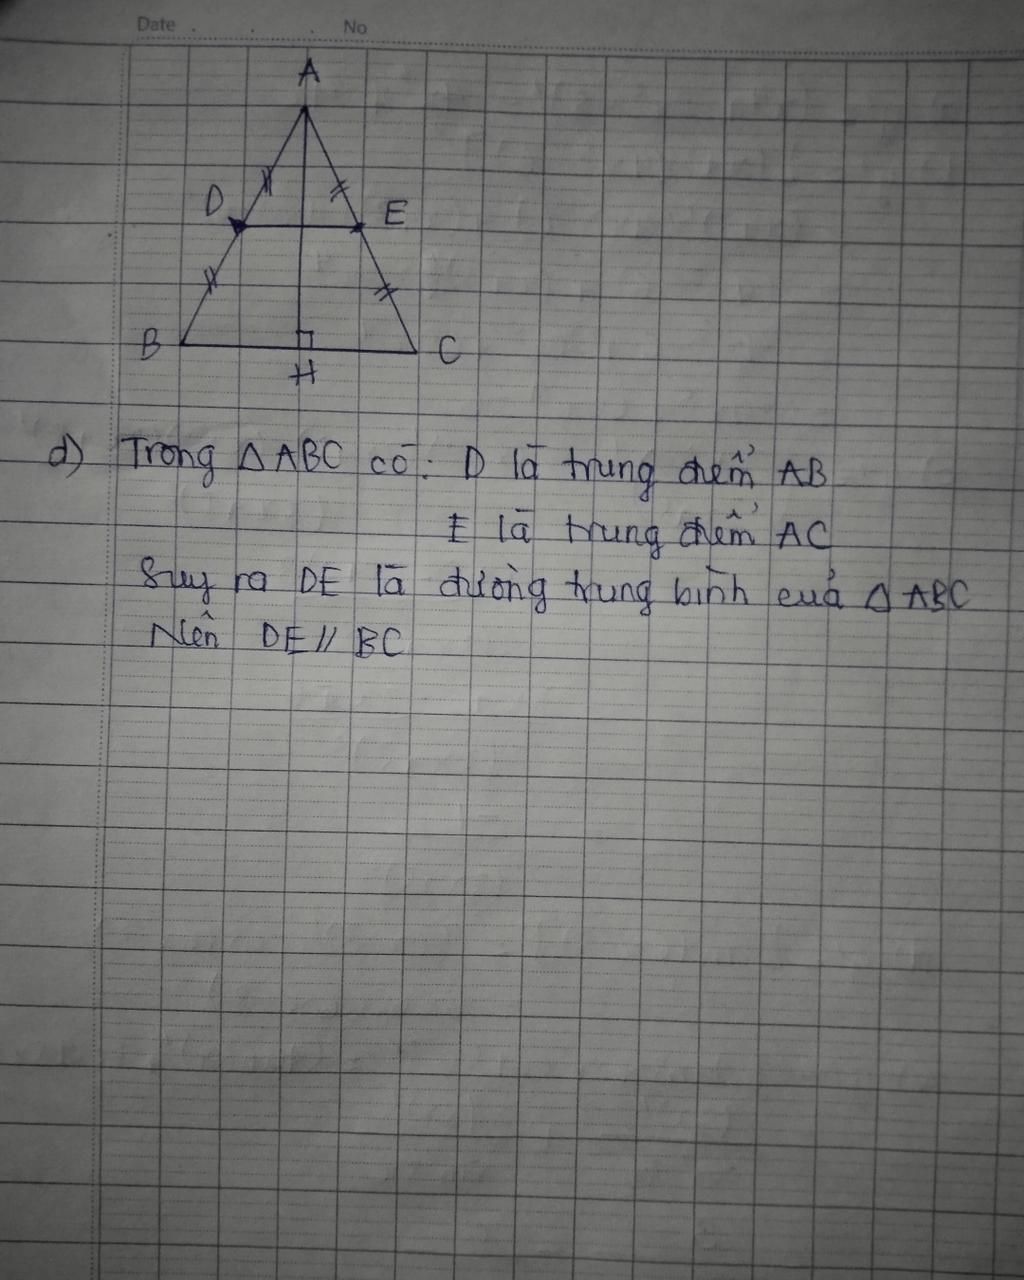 Date . . . No
A
D
E
B
C
H
d) Trong △ABC có: D là trung điểm AB
E là trung điểm AC
Suy ra DE là đường trung bình của △ABC
Nên DE // BC